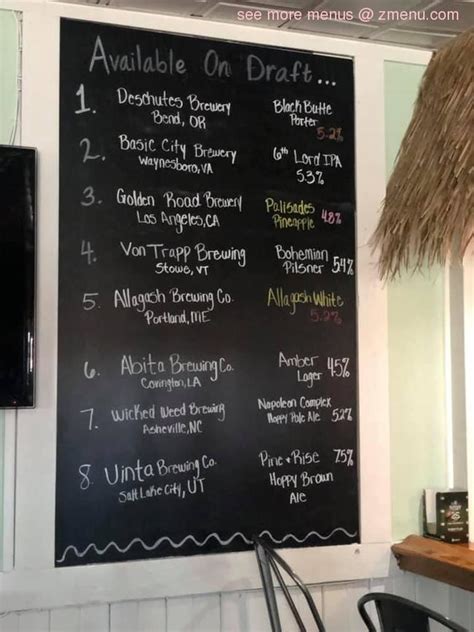 see more menus @ zmenu.com
Available On Draft...
1. Deschutes Brewery Black Butte
Bend, OR Porter
5.2%
2. Basic City Brewery 6th Lord IPA
Waynesboro, VA 5.3%
3. Golden Road Brewery Palisades
Los Angeles, CA Pineapple 4.8%
4. Von Trapp Brewing Bohemian
Stowe, VT Pilsner 5.4%
5. Allagash Brewing Co. Allagash White
Portland, ME 5.2%
6. Abita Brewing Co. Amber 4.5%
Covington, LA Lager
7. Wicked Weed Brewing Napoleon Complex
Asheville, NC Hoppy Pale Ale 5.2%
8. Uinta Brewing Co. Pine & Rise 7.5%
Salt Lake City, UT Hoppy Brown
Ale